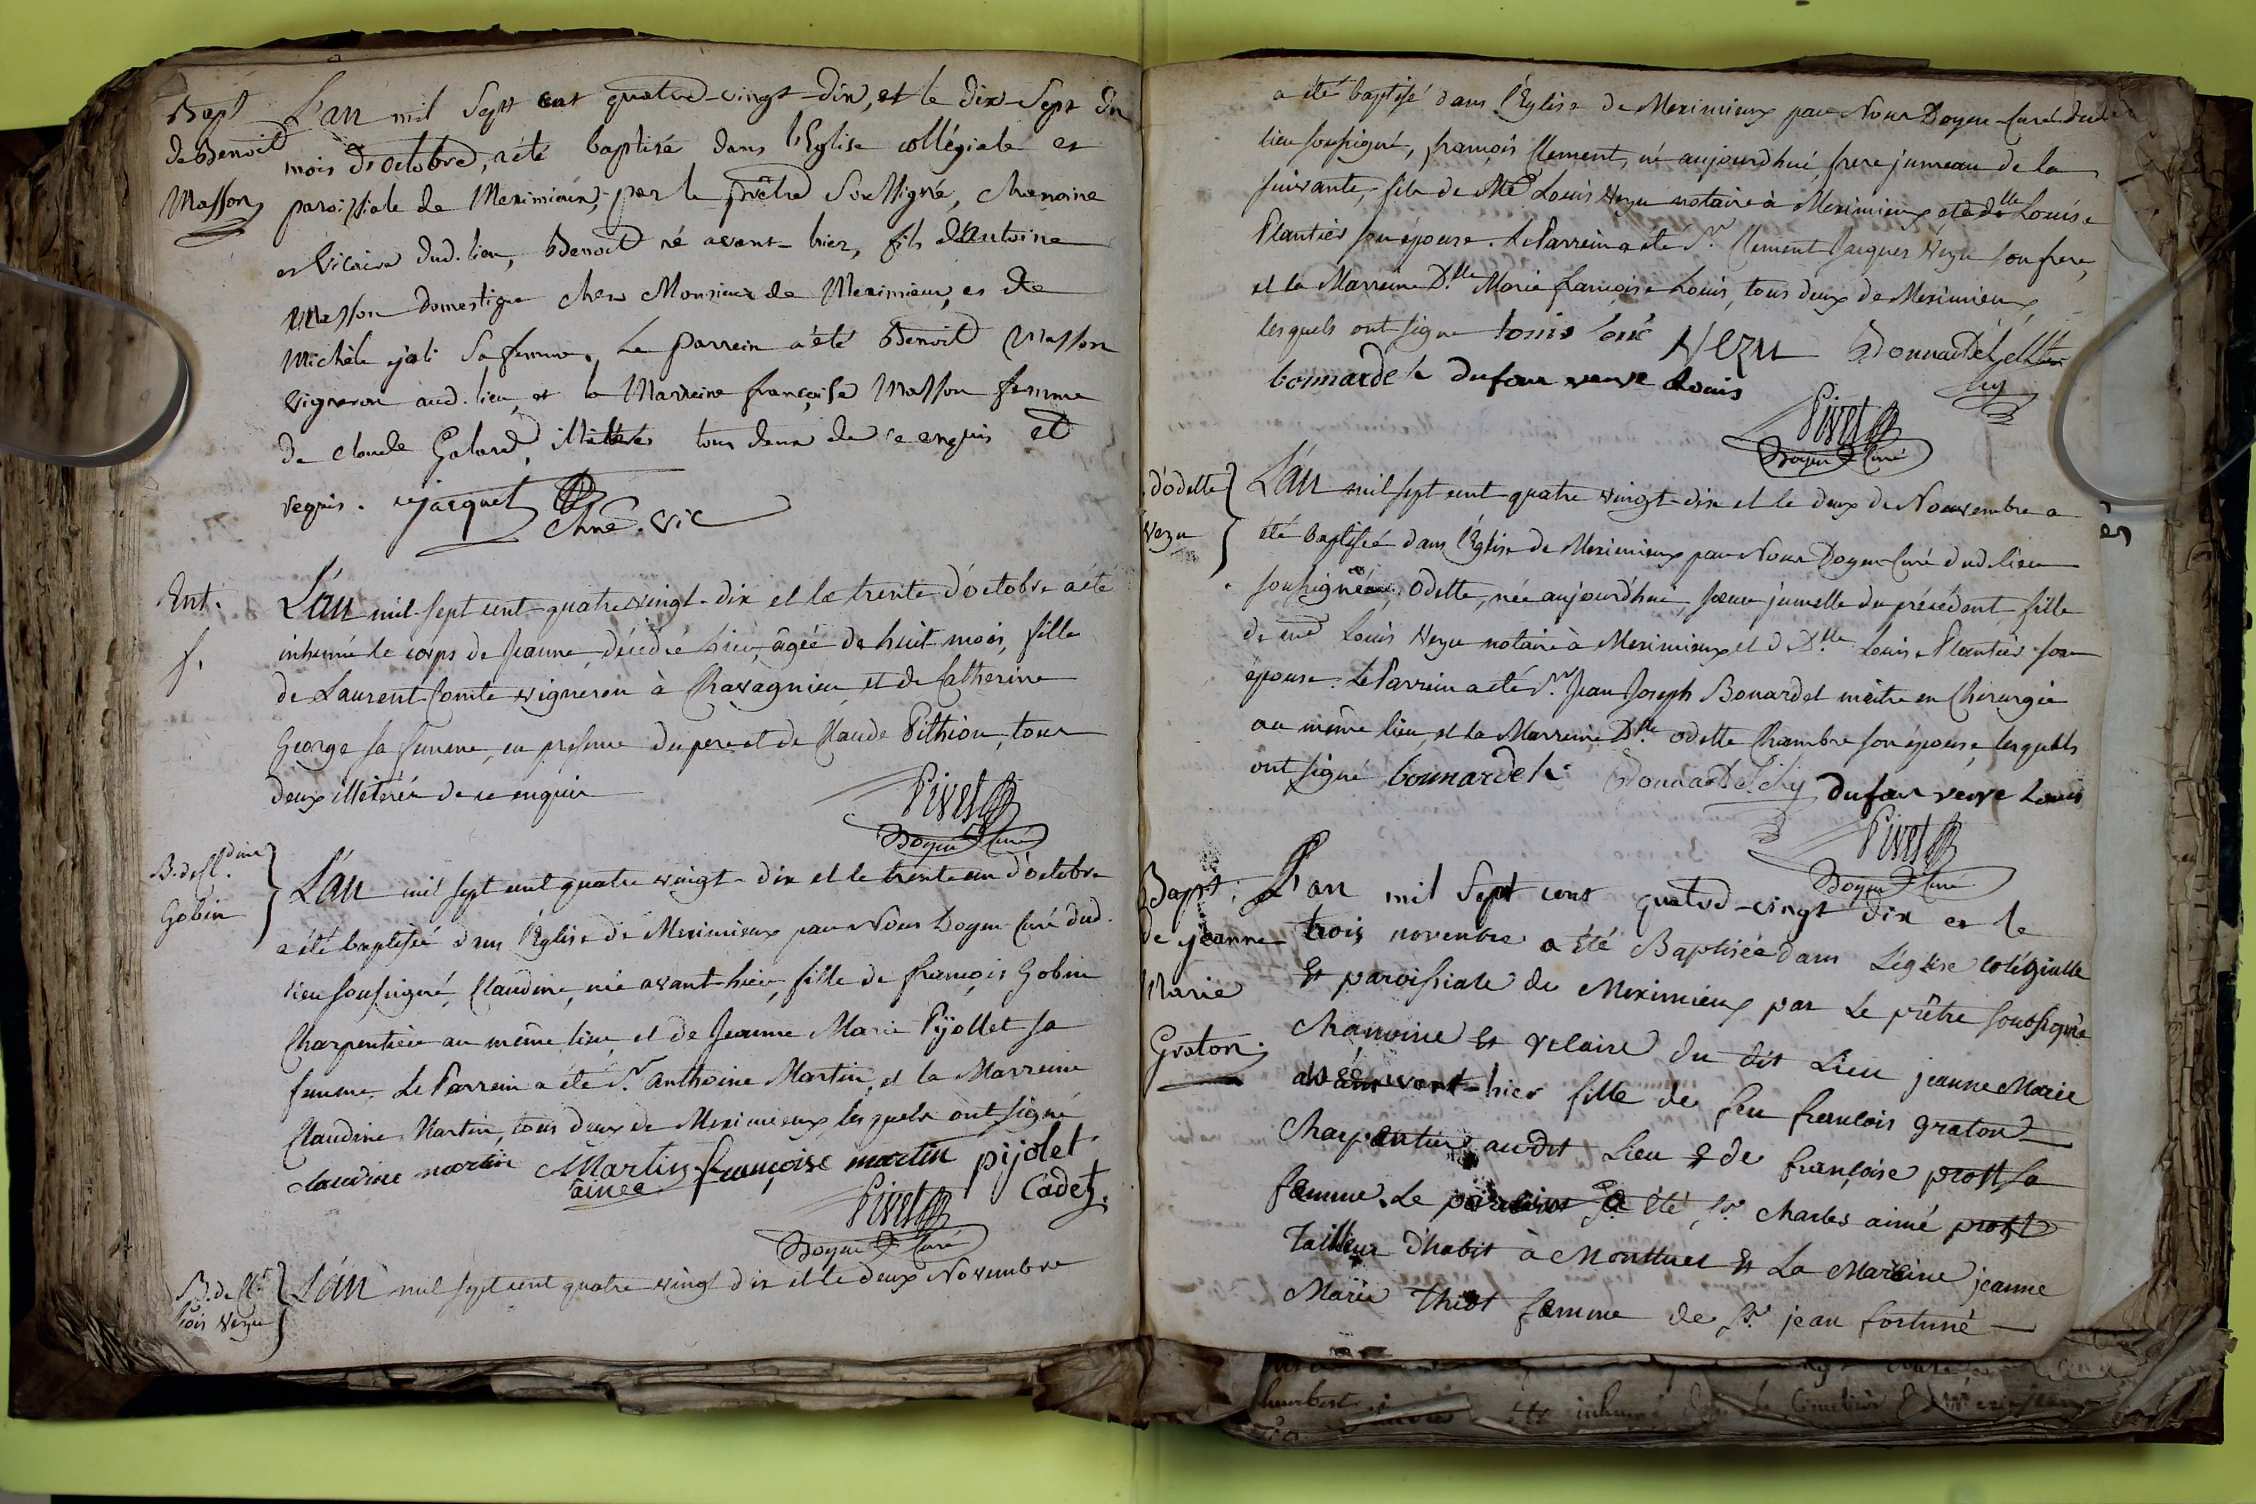 Bapt
de Benoit
Masson
L'an mil Sept cent quatre-vingt-dix, et le dix-Sept du
mois d'octobre, a été baptisé dans l'Eglise collégiale et
paroissiale de Meximieux, par le prêtre Soussigné, chanoine
et Vicaire dud. lieu, Benoit né avant-hier, fils d'Antoine
Masson domestique chez Monsieur de Meximieux, et de
Michèle jali Sa femme. Le parrein a été Benoit Masson
vigneron aud. lieu, et la Marreine françoise Masson femme
de claude Galand, illitérés tous deux de ce enquis et
requis. jacquet
chne. vic
Ent.
f.
L'an mil sept cent quatre vingt-dix et le trente d'octobre a été
inhumé le corps de Jeanne, décédée hier, âgée de huit mois, fille
de Laurent Comte vigneron à Chavagnieu et de Catherine
George sa femme, en présence du pere et de Claude Pithiou, tous
deux illiterés de ce enquis
Pivet
Doyen Curé
B. de Cl.dine
Gobin
L'an mil sept cent quatre vingt-dix et le trente-un d'octobre
a été baptisée dans l'Eglise de Meximieux par Nous Doyen Curé dud.
lieu soussigné, Claudine, née avant-hier, fille de françois Gobin
Charpentier au même lieu et de Jeanne Marie Pijollet sa
femme. Le Parrein a été Sr. anthoine Martin, et la Marreine
Claudine Martin, tous deux de Meximieux, lesquels ont signé
claudine martin Martin françoise martin pijolet
ainée cadet.
Pivet
Doyen Curé
B. de
çois Nezu
L'an mil sept cent quatre vingt dix et le deux Novembre
a été baptisé dans l'Eglise de Meximieux par Nous Doyen-Curé dud
lieu soussigné, françois Clement, né aujourd'hui, frere jumeau de la
suivante, fils de Me Louis Nezu notaire à Meximieux et de dlle Louise
Plantier son épouse. Le Parrein a été Sr. Clement Jacques Nezu son frere,
et la Marreine Dlle Marie françoise Louis, tous deux de Meximieux,
lesquels ont signé Nezu
bonnardel dufour veuve Louis
Pivet
Doyen Curé
d'odette
Nezu
L'an mil sept cent quatre vingt-dix et le deux de Novembre a
été baptisée dans l'Eglise de Meximieux par Nous Doyen-Curé dud. lieu
soussigné, Odette, née aujourd'hui, soeur jumelle du précédent, fille
de me Louis Nezu notaire à Meximieux et de Dlle Louise Plantier son
épouse. Le Parrein a été Sr. Jean Joseph Bonardel maître en Chirurgie
au même lieu, et la Marreine Dlle odette Chambre son épouse, lesquels
ont signé bonnardel Bonnardel dufour veuve Louis
Pivet
Doyen Curé
Bapt:
de jeanne
Marie
Graton.
L'an mil Sept cent quatre-vingt dix et le
trois novembre a été Baptisée dans L'église colégialle
Et paroissiale de Meximieux par Le prêtre Soussigné
chanoine Et vicaire du dit Lieu jeanne Marie
avant-hier fille de feu francois graton
charpentier audit Lieu & de françoise prost sa
femme. Le parrein a été Sr. charles aimé prost
Tailleur d'habit à Montluel Et La Mareine jeanne
Marie Thiot femme de Sr. jean fortuné